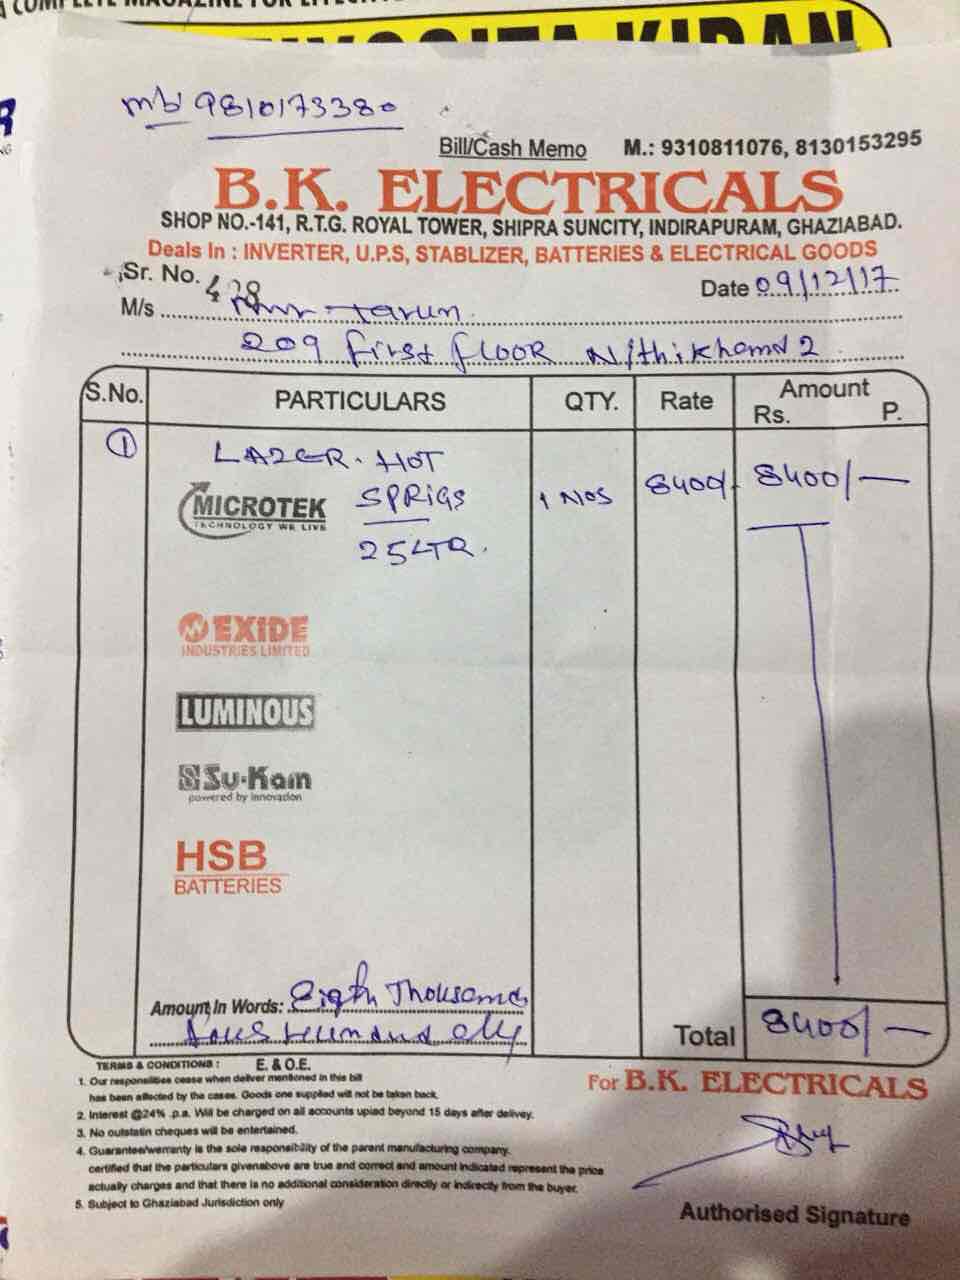 A COMPLETE MAGAZINE FOR EFFECTIVE
KIRAN
mb 9810173380
Bill/Cash Memo M.: 9310811076, 8130153295
B.K. ELECTRICALS
SHOP NO.-141, R.T.G. ROYAL TOWER, SHIPRA SUNCITY, INDIRAPURAM, GHAZIABAD.
Deals In : INVERTER, U.P.S, STABLIZER, BATTERIES & ELECTRICAL GOODS
Sr. No. 428 Date 09/12/17
M/s Mr Tarun
209 First Floor Nithikhand 2
S.No. PARTICULARS QTY. Rate Amount
Rs. P.
1 LAZER. HOT
MICROTEK SPRIGS 1 NOS 8400/- 8400/-
TECHNOLOGY WE LIVE
25 LTR.
EXIDE
INDUSTRIES LIMITED
LUMINOUS
Su-Kam
powered by innovation
HSB
BATTERIES
Amount In Words: Eigth Thousand
Total 8400/-
TERMS & CONDITIONS : E. & O.E.
For B.K. ELECTRICALS
1. Our responsilities cease when deliver mentioned in this bill
has been affected by the cases. Goods one supplied will not be taken back,
2. Interest @24% .p.a. Will be charged on all accounts upiad beyond 15 days after delivey.
3. No outstatin cheques will be entertained.
4. Guarantee/werranty is the sole responsibility of the parent manufacturing company.
certified that the particulars givenabove are true and correct and amount indicated represent the price
actually charges and that there is no additional consideration directly or indirectly from the buyer.
5. Subject to Ghaziabad Jurisdiction only
Authorised Signature